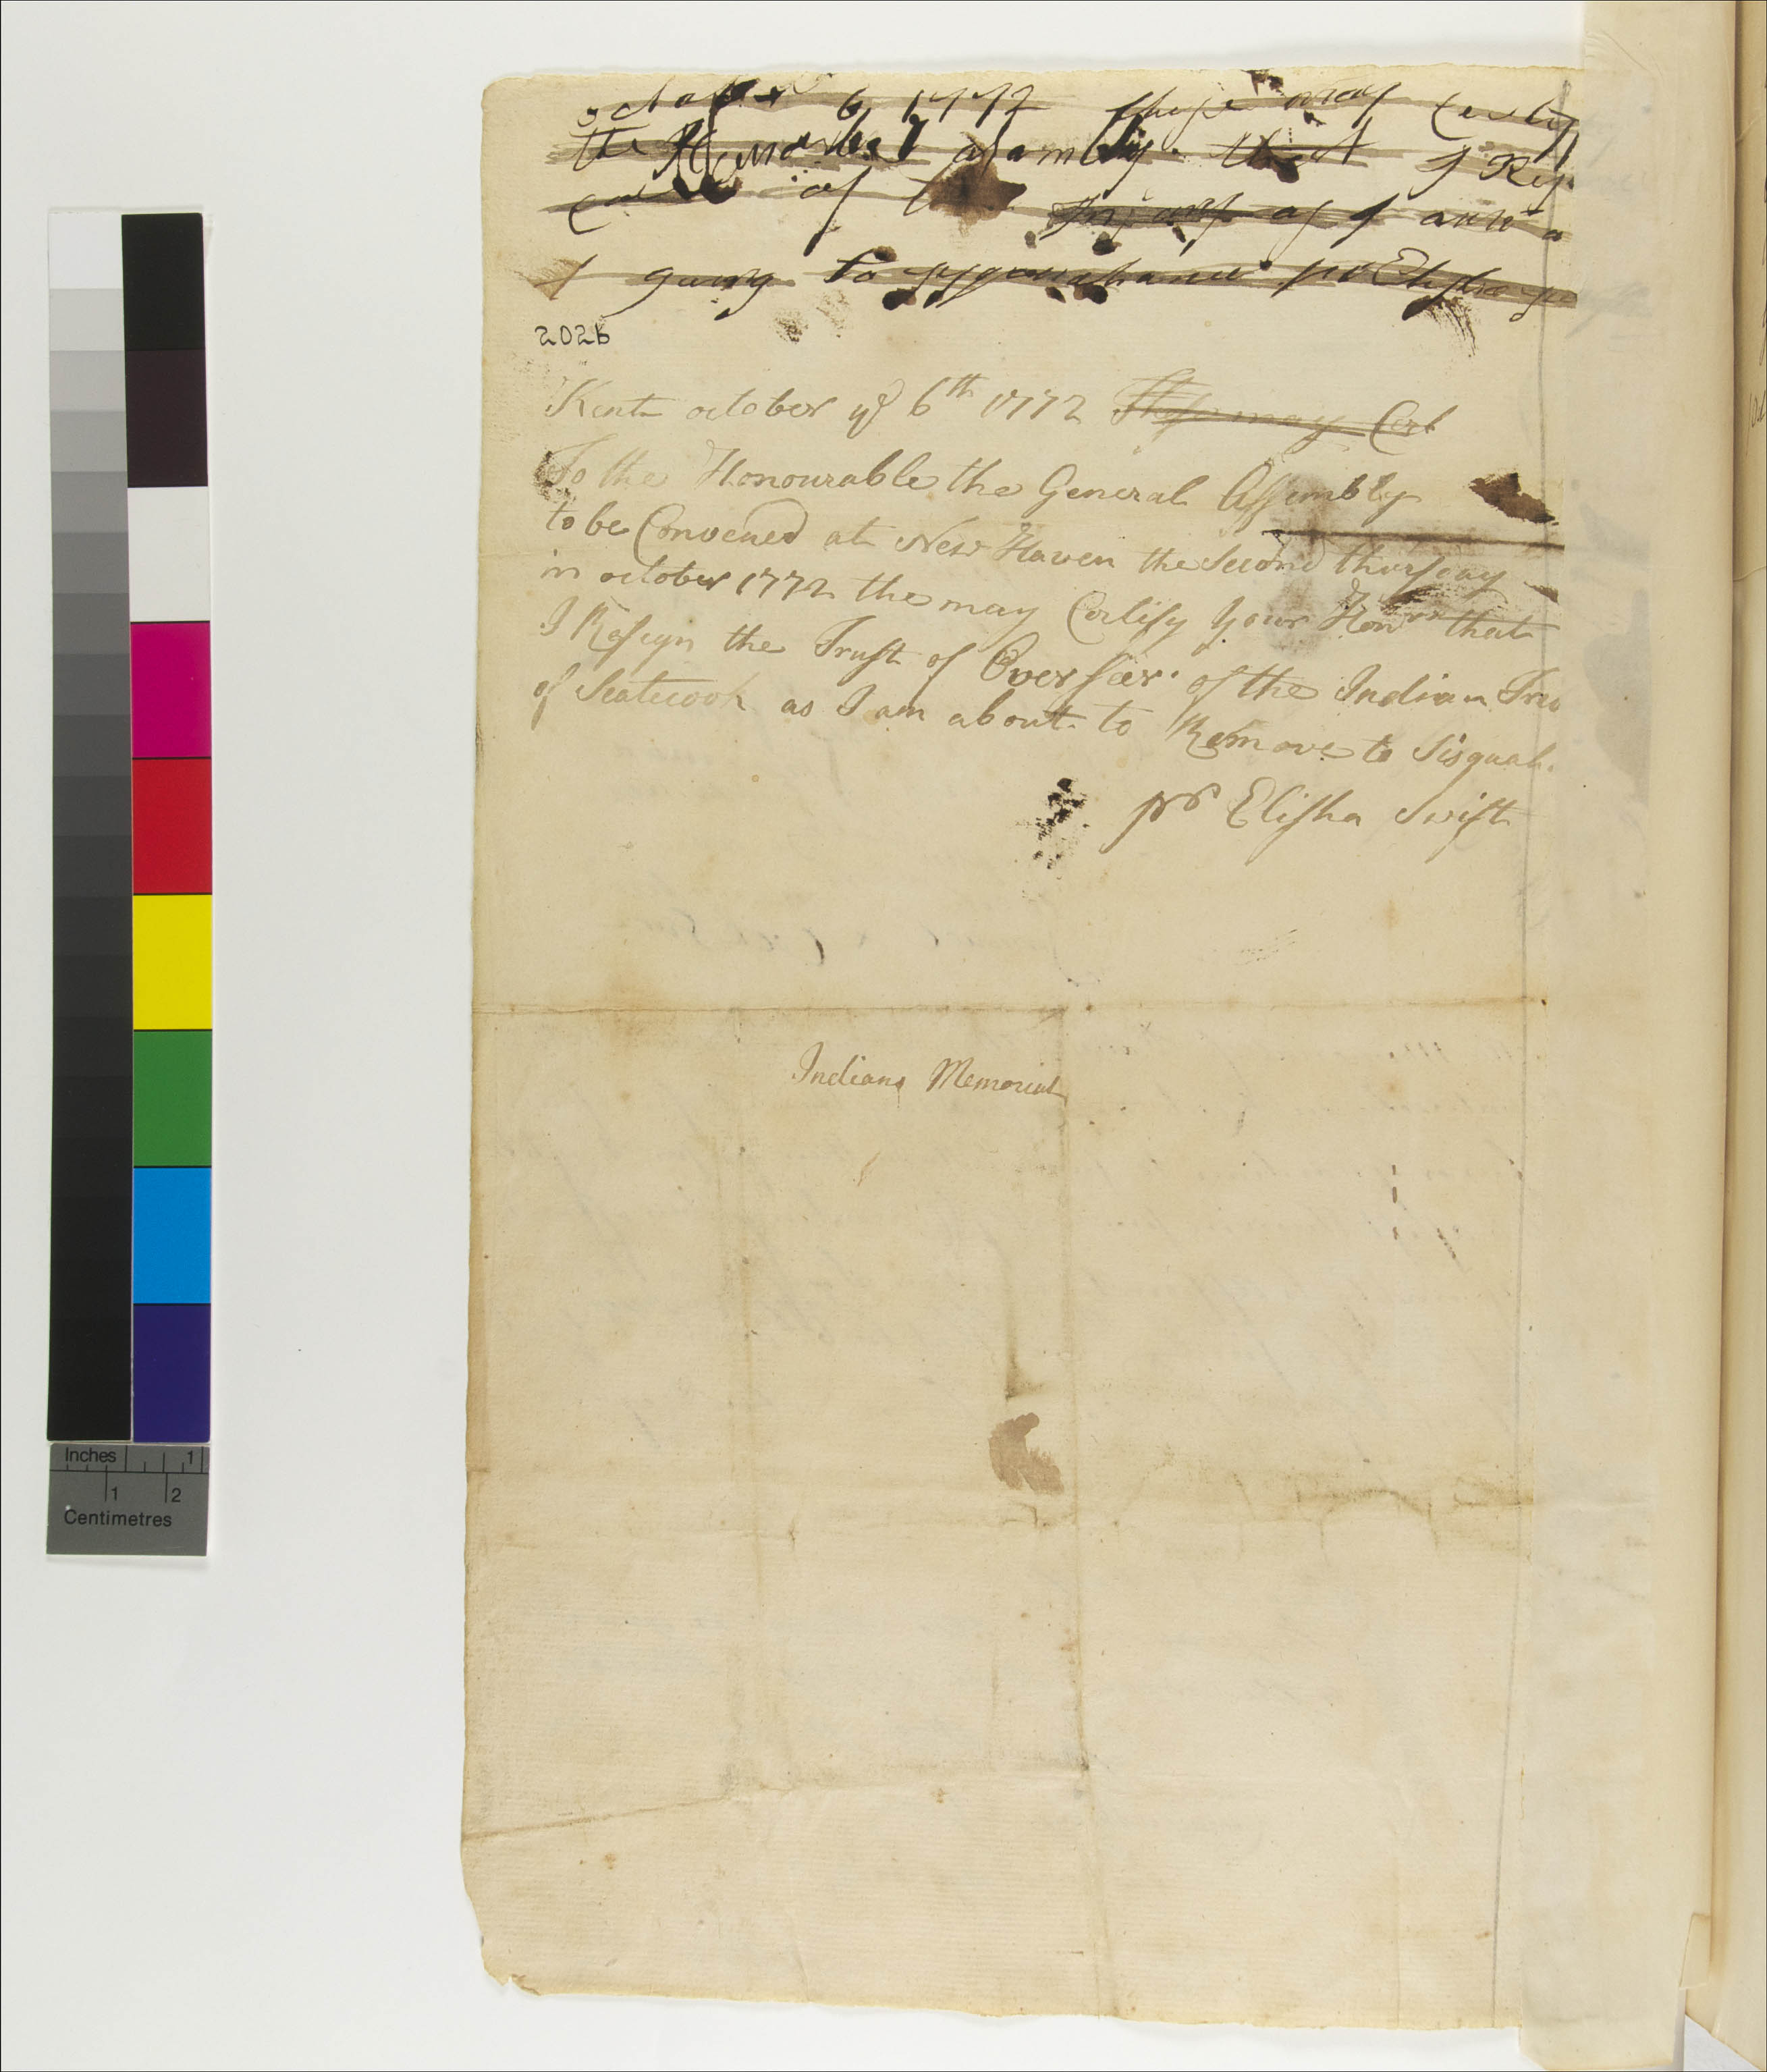 october 6 1772 these may Certify
the Honorabel asambly that I Resi
of the Indians as I am a
going to sqquaahanai pr Elisha
202b
Kent october ye 6th 1772 These may Cert
To the Honourable the General Assembly
to be Convened at New Haven the Second thursday
in october 1772 the may Certify your Honrs that
I Resign the Trust of Overseer of the Indian Tribe
of Scatecook as I am about to Remove to Sisquah.
pr Elisha Swift
Indians Memorial
Inches 1
1 2
Centimetres